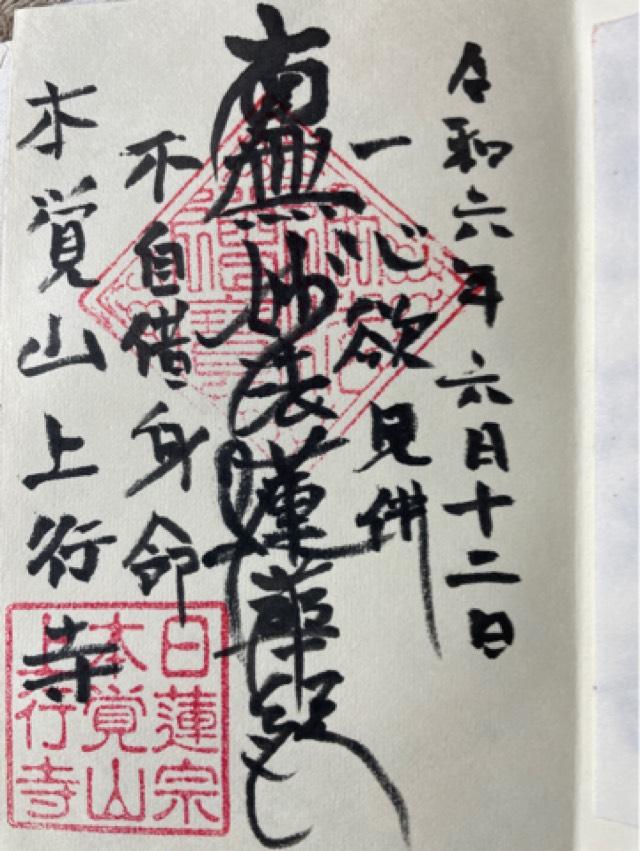 令和六年六月十二日
一心欲見佛
南無妙法蓮華経
不自借身命
本覚山上行寺
日蓮宗
本覚山
上行寺